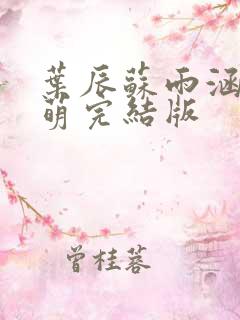 葉辰蘇雨涵
萌完結版
曾桂蓉